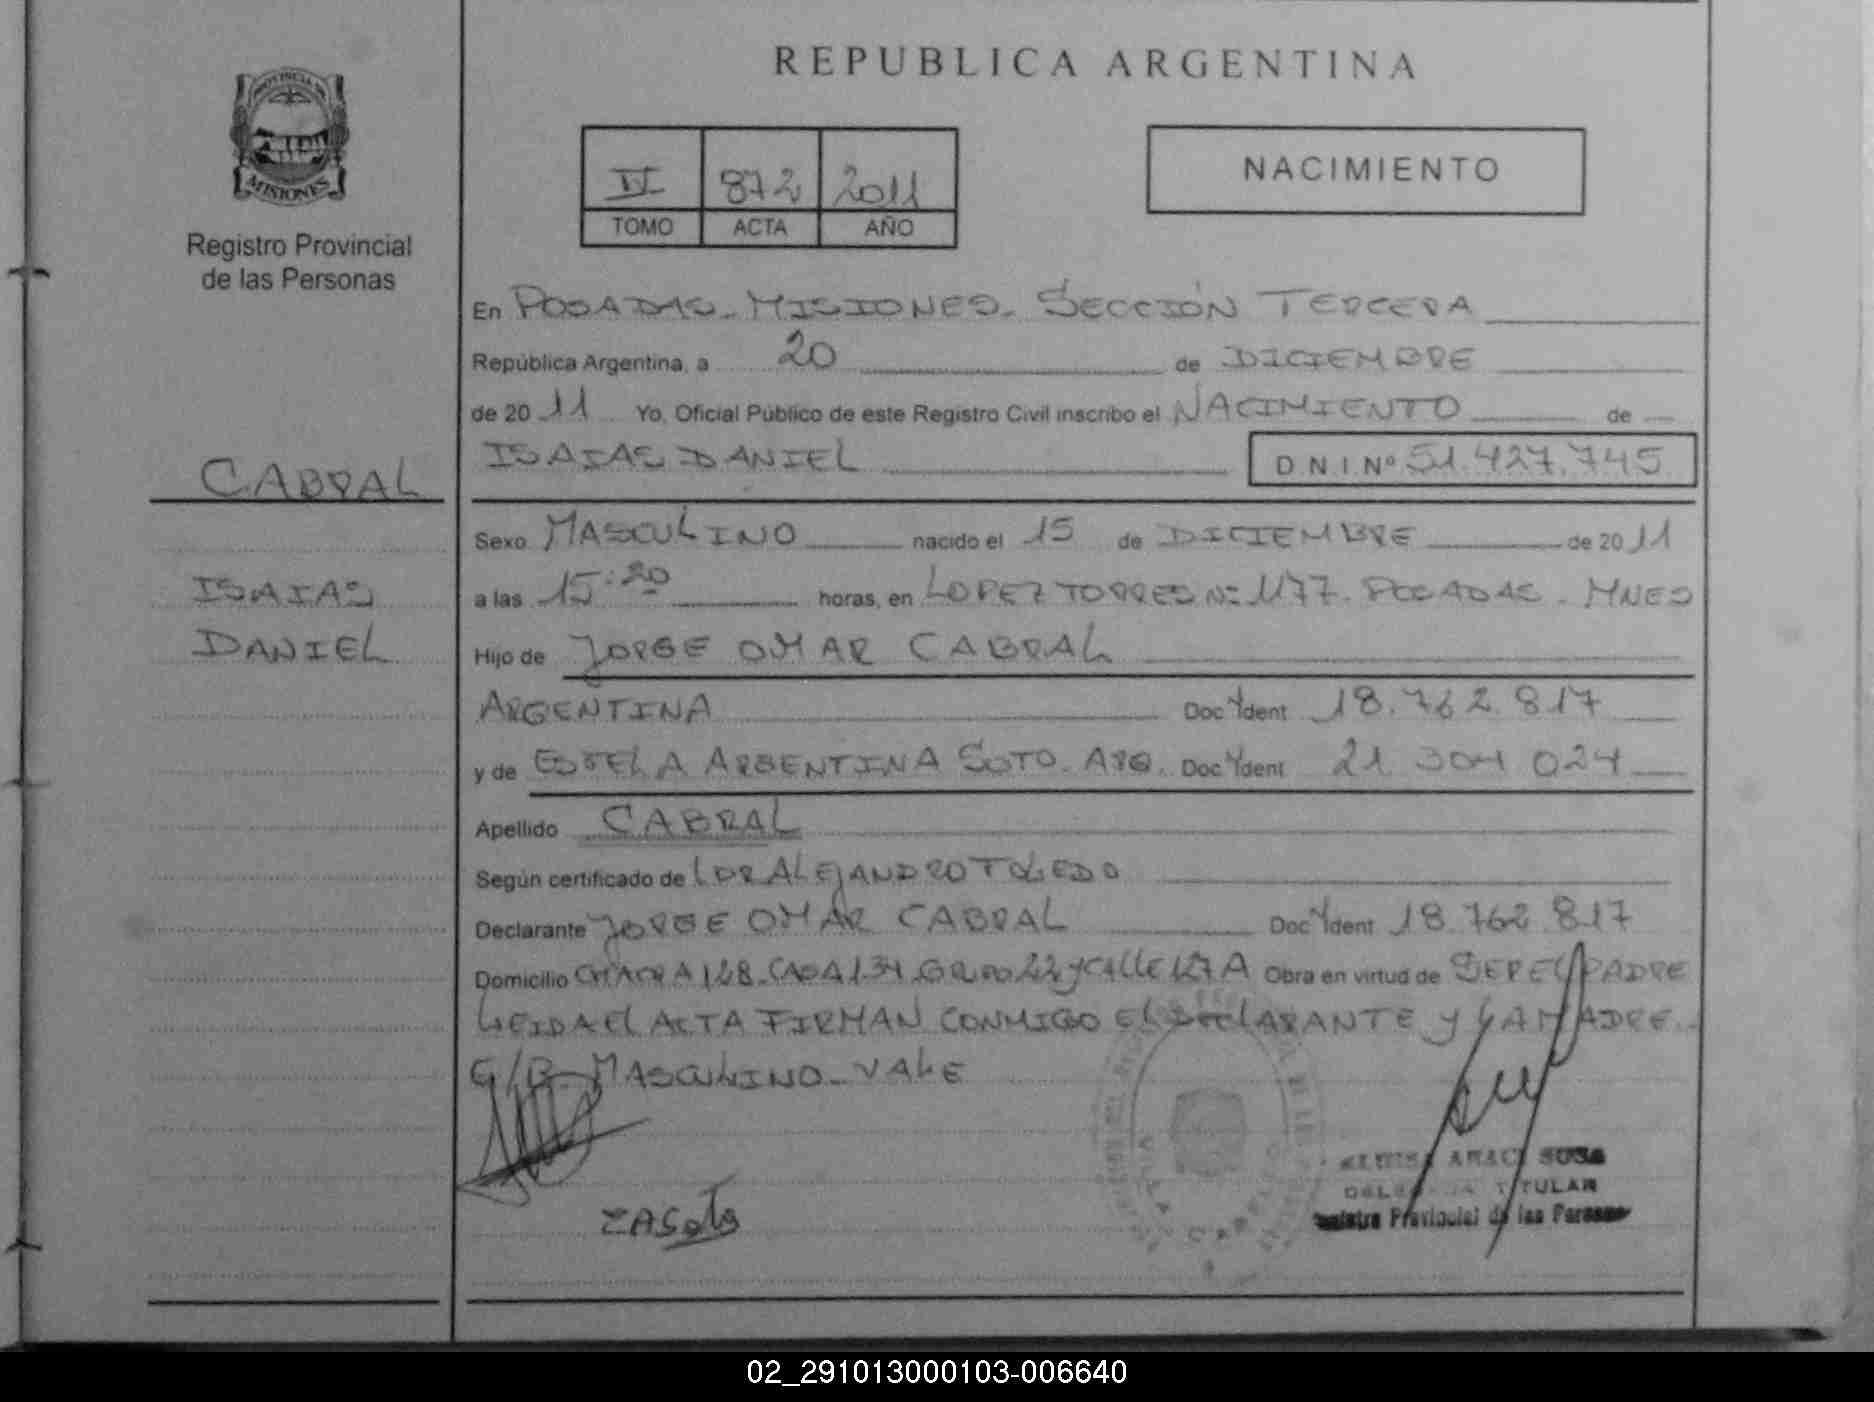 REPUBLICA ARGENTINA
PROVINCIA DE
MISIONES
Registro Provincial
de las Personas
872 2011
TOMO ACTA AÑO
NACIMIENTO
En POSADAS - MISIONES - SECCIÓN TERCERA
República Argentina, a 20 de DICIEMBRE
de 2011 Yo, Oficial Público de este Registro Civil inscribo el NACIMIENTO de
ISAIAS DANIEL D.N.I.Nº 51.427.745
CABRAL
ISAIAS
DANIEL
Sexo MASCULINO nacido el 15 de DICIEMBRE de 2011
a las 15:20 horas, en LOPEZ TORRES Nº 1177. POSADAS - MNES
Hijo de JORGE OMAR CABRAL
ARGENTINA Doc Ydent 18.762.817
y de ESTELA ARGENTINA SOTO. ARG. Doc Ydent 21 304 024
Apellido CABRAL
Según certificado de DR ALEJANDRO TOLEDO
Declarante JORGE OMAR CABRAL Doc Ydent 18.762.817
Domicilio CHACRA 128 CASA 134 22 Y CALLE 127 A Obra en virtud de SER EL PADRE
LEIDA EL ACTA FIRMAN CONMIGO EL DECLARANTE Y LA MADRE.
MASCULINO - VALE
SOSA
TITULAR
Registro Provincial de las Personas
02_291013000103-006640